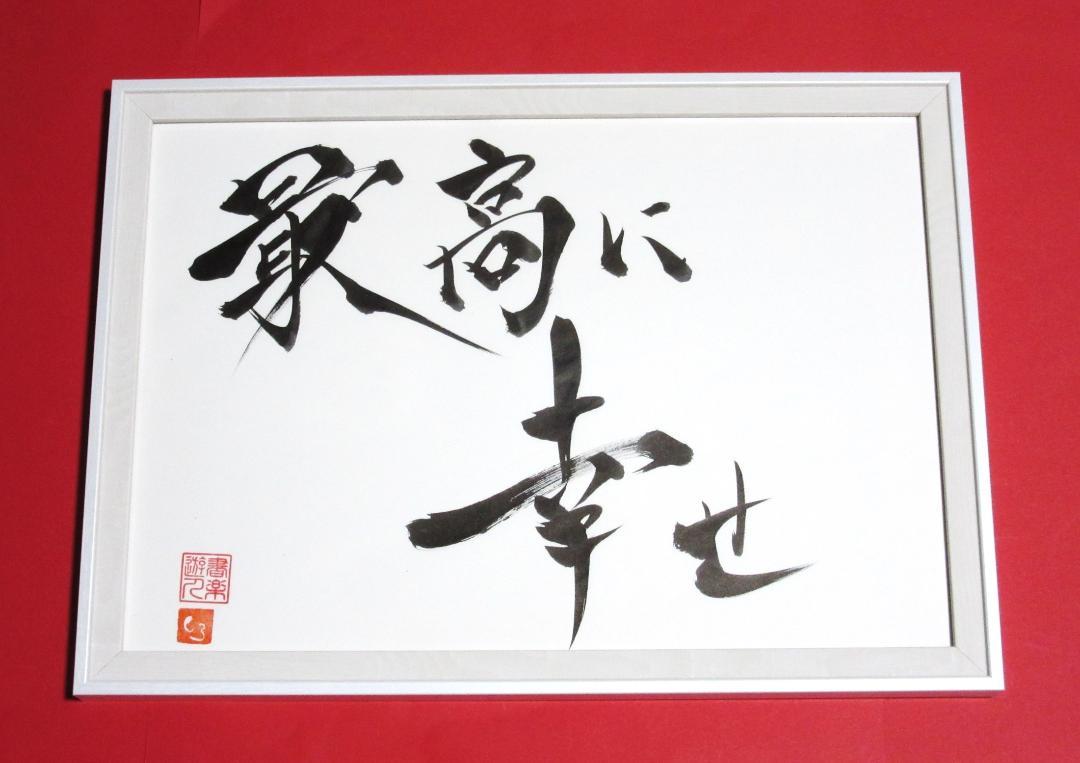 最高に
幸せ
書楽
遊人